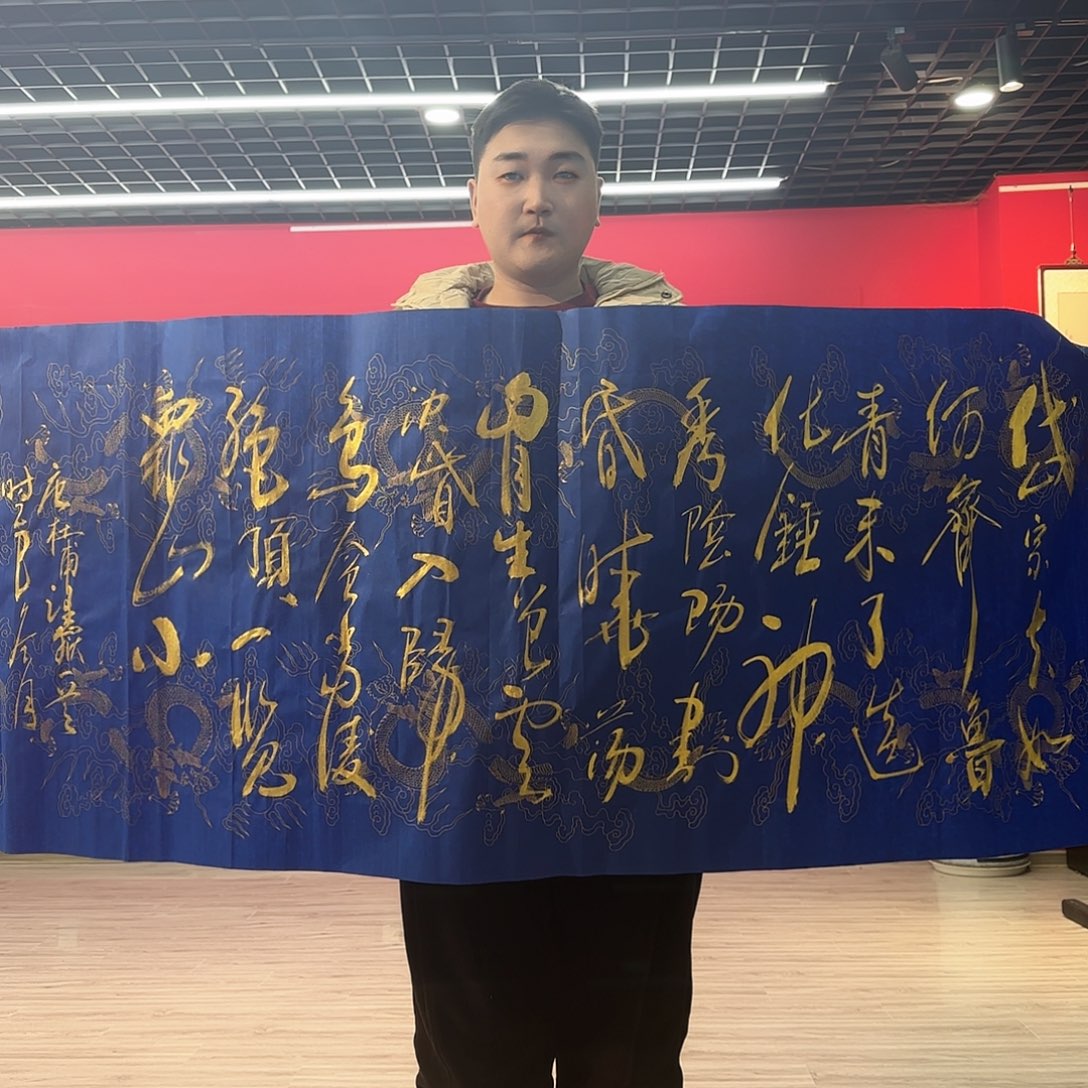 岱宗夫如
何齊魯
青未了造
化鍾神
秀陰陽割
昏曉蕩
胷生曾雲
決眥入歸
鳥會當凌
絕頂一覽
眾山小
唐杜甫望嶽
時